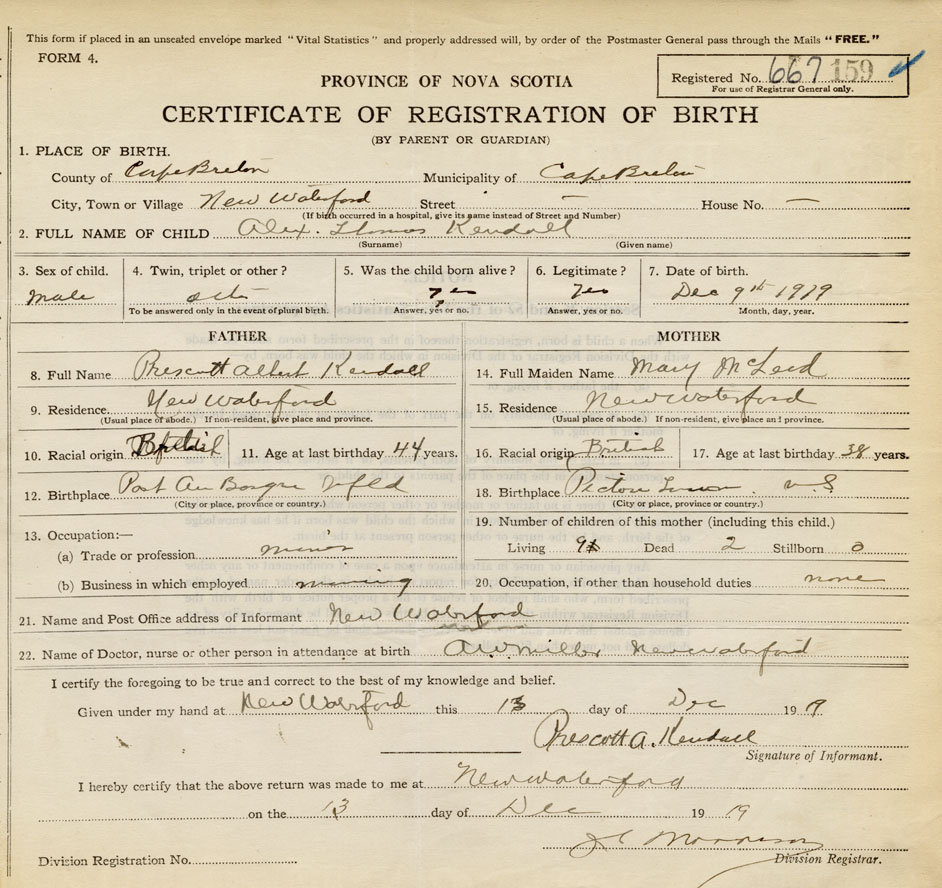 This form if placed in an unsealed envelope marked "Vital Statistics" and properly addressed will, by order of the Postmaster General pass through the Mails "FREE."
FORM 4.
Registered No. 667 159
For use of Registrar General only.
PROVINCE OF NOVA SCOTIA
CERTIFICATE OF REGISTRATION OF BIRTH
(BY PARENT OR GUARDIAN)
1. PLACE OF BIRTH.
County of Cape Breton Municipality of Cape Breton
City, Town or Village New Waterford Street — House No. —
(If birth occurred in a hospital, give its name instead of Street and Number)
2. FULL NAME OF CHILD Alex. Thomas Kendall
(Surname) (Given name)
3. Sex of child. 4. Twin, triplet or other? 5. Was the child born alive? 6. Legitimate? 7. Date of birth.
male Yes Yes Dec 9th 1919
To be answered only in the event of plural birth. Answer, yes or no. Answer, yes or no. Month, day, year.
FATHER MOTHER
8. Full Name Prescott Albert Kendall 14. Full Maiden Name Mary McLeod
9. Residence. New Waterford 15. Residence New Waterford
(Usual place of abode.) If non-resident, give place and province. (Usual place of abode.) If non-resident, give place and province.
10. Racial origin British 11. Age at last birthday 44 years. 16. Racial origin British 17. Age at last birthday 38 years.
12. Birthplace Port Au Basque Nfld 18. Birthplace Pictou Town. N.S
(City or place, province or country.) (City or place, province or country.)
13. Occupation:— 19. Number of children of this mother (including this child.)
(a) Trade or profession miner Living 9 Dead 2 Stillborn 0
(b) Business in which employed mining 20. Occupation, if other than household duties none
21. Name and Post Office address of Informant New Waterford
22. Name of Doctor, nurse or other person in attendance at birth A W Miller New Waterford
I certify the foregoing to be true and correct to the best of my knowledge and belief.
Given under my hand at New Waterford this 13 day of Dec 19 19
Prescott A. Kendall
Signature of Informant.
I hereby certify that the above return was made to me at New Waterford
on the 13 day of Dec 19 19
Morrison
Division Registration No. Division Registrar.